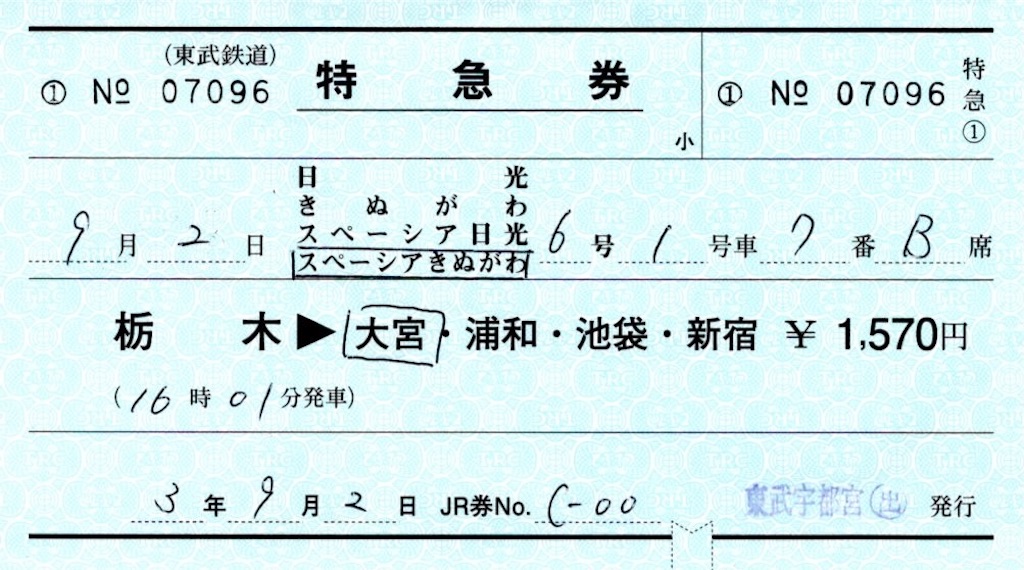 (東武鉄道)
① № 07096 特急券 小
① № 07096 特急①
日光
きぬがわ
スペーシア日光
スペーシアきぬがわ
9月2日 6号 1号車 7番 B席
栃木▶大宮・浦和・池袋・新宿 ¥1,570円
(16時01分発車)
3年9月2日 JR券No. C-00 東武宇都宮㊤発行